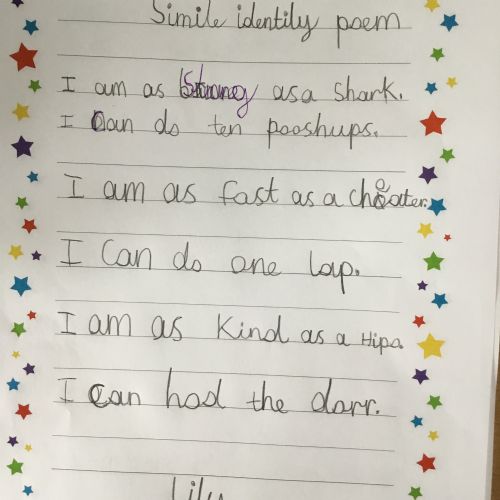 Simile identily poem
I am as Strong as a shark.
I Can do ten pooshups.
I am as fast as a cheater.
I Can do one lap.
I am as Kind as a Hipo.
I Can hod the darr.
Lily